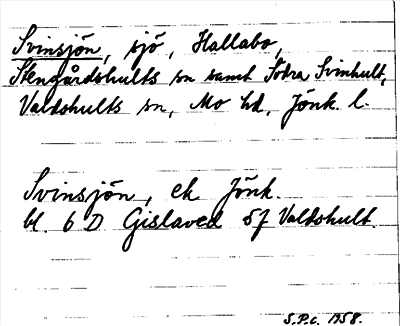 Svinsjön, sjö, Hallabo,
Stengårdshults sn samt Södra Svinhult,
Valdshults sn, Mo hd, Jönk. l.
Svinsjön, ek Jönk.
bl. 6 D Gislaved 5f Valdshult.
S.P.c. 1958.